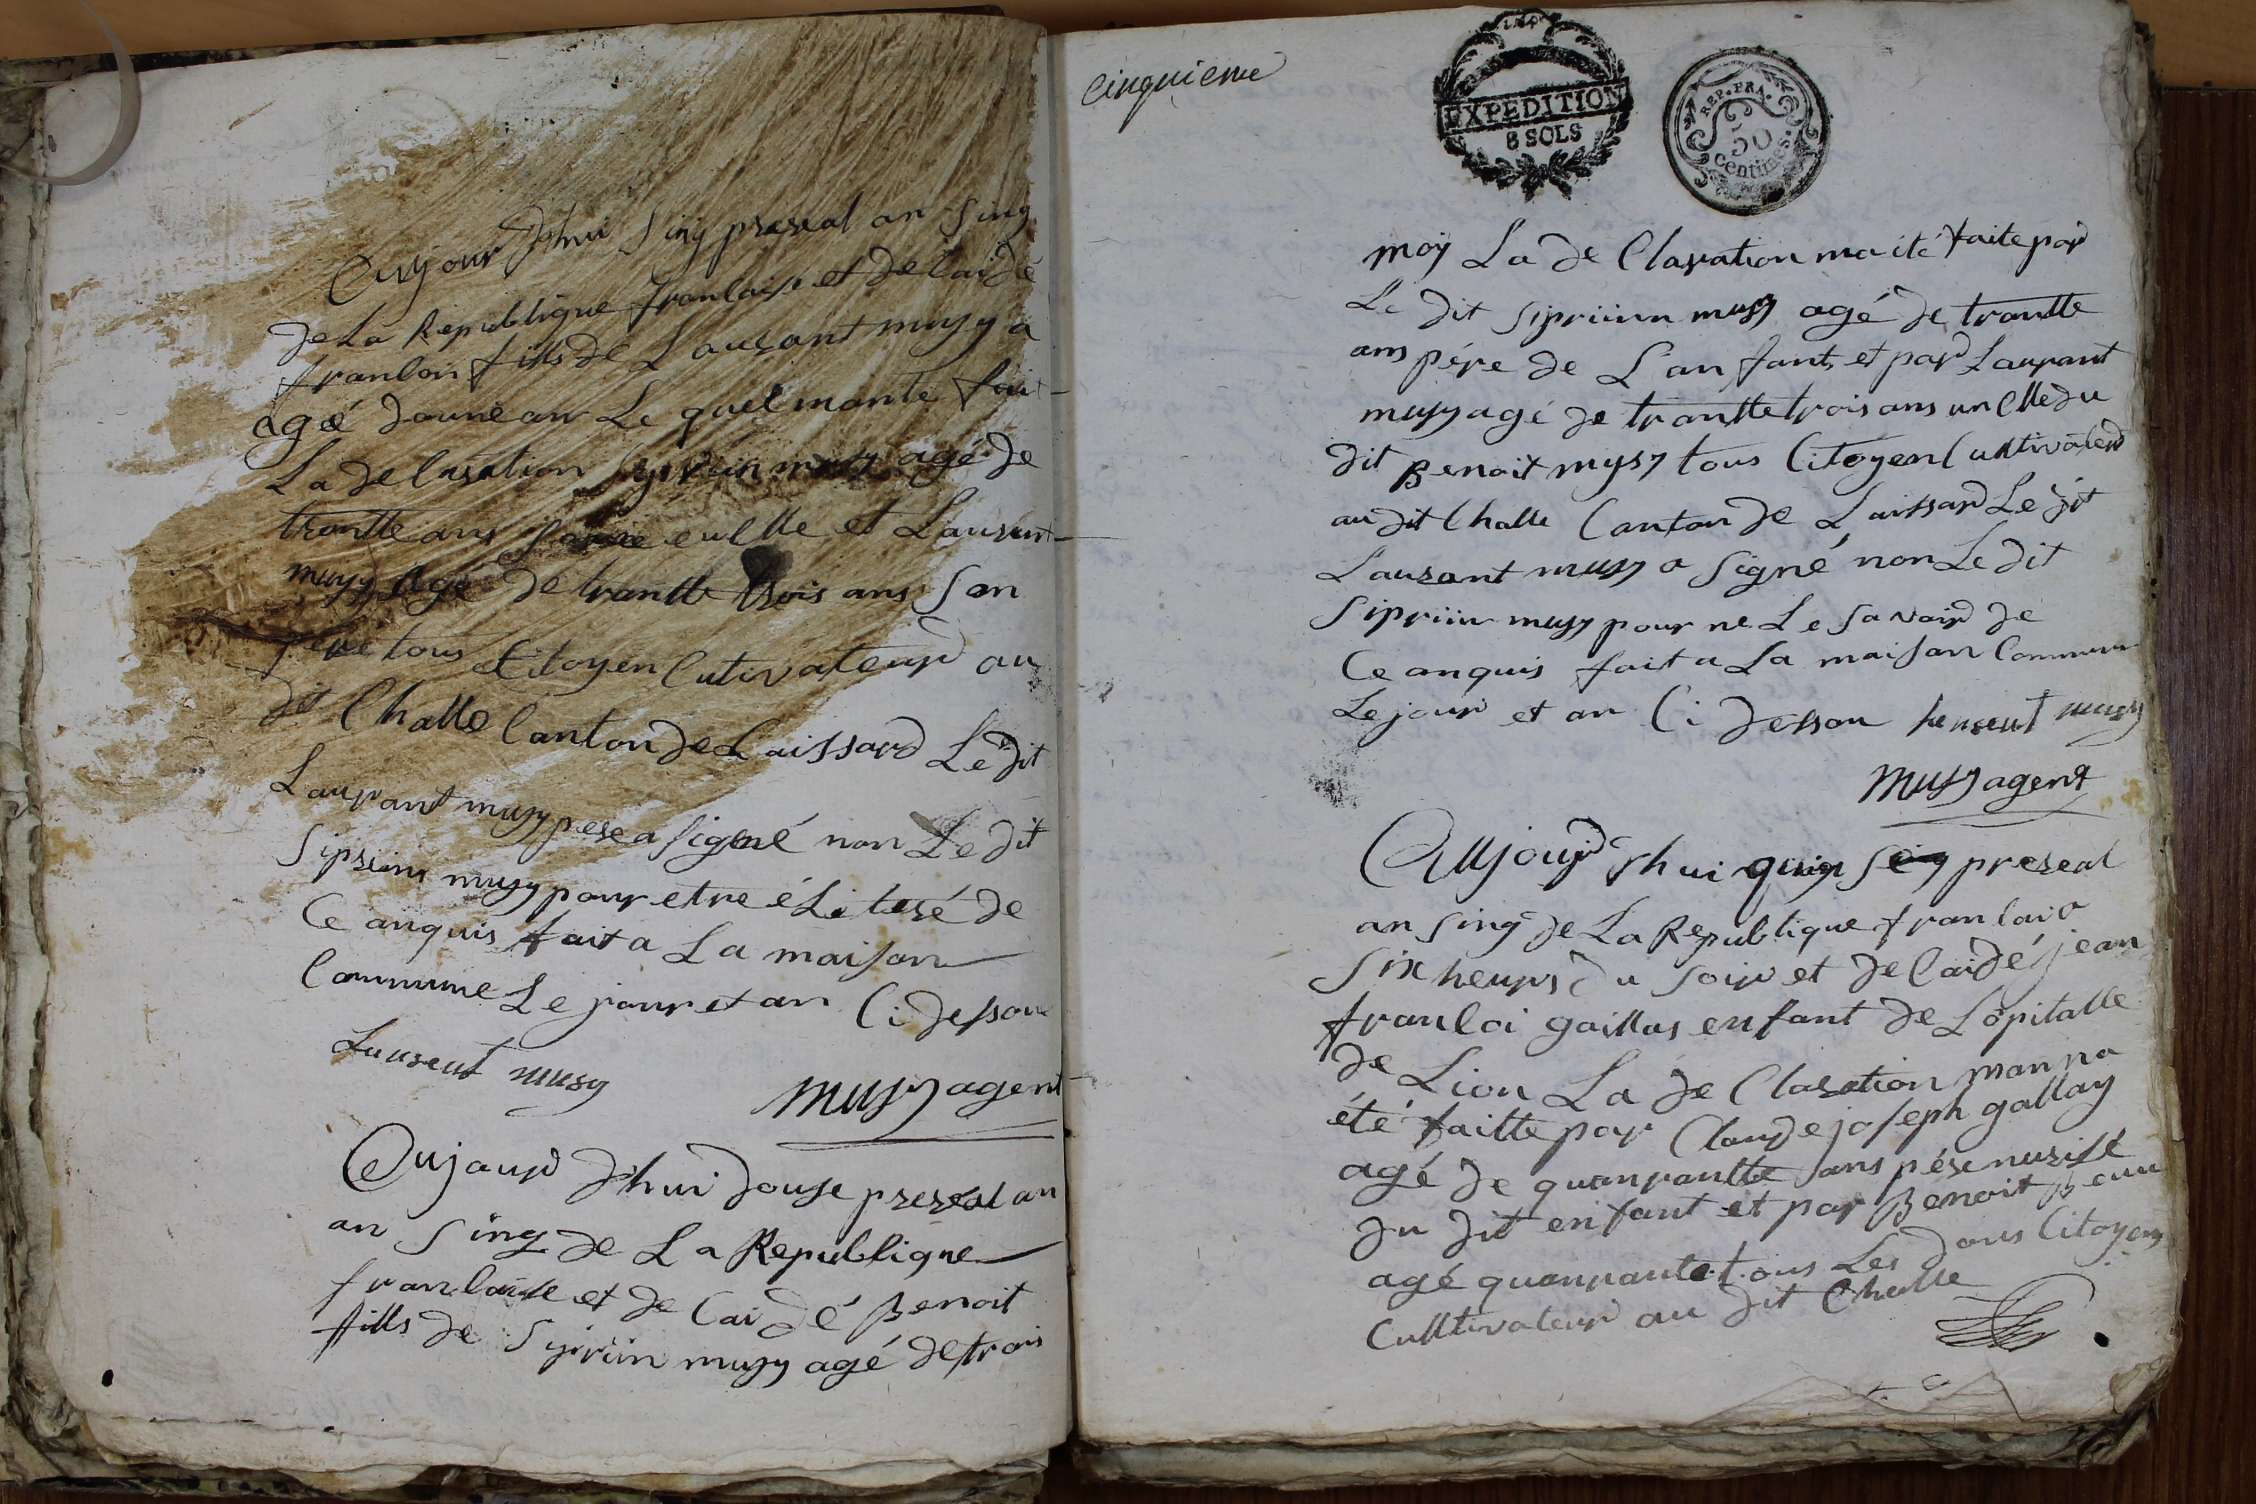 Aujour dhui sinq prereal an sinq
de La Republique franlaise et de laidé
franloin fills de Laurant musy a
agé doune an Le quel mante fait
La de lasation Sipriin musy agé de
trantte ans et Laurent
musy agé de trantte trois ans son
pere tous Citoyen Cutivateurd au
dit Challe Canton de Laissard Le dit
Laurant musy pere a signé non Le dit
Sipriin musy pour etre éLiteré de
Ce anquis fait a La maison
Commune Le jour et an Ci dessou
Laurent musy
musy agent
Aujourd dhui douse prereal an
an sinq de La Republique
franlaise et de Caidé Benoit
fills de Sipriin musy agé de trois
cinquieme
EXPEDITION
8 SOLS
REP. FRA.
50
centimes.
moy La de Claration ma été faite pard
Le dit Sipriinn musy agé de trantte
ans pére de Lan fant et pard Laurant
musy agé de trantte trois ans unClle du
dit Benoit mysy tous Citoyen Cultivaterd
au dit Challe Canton de Laissard Le dit
Laurant musy a signé non Le dit
Sipriin musy pour ne Le savoird de
Ce anquis fait a La maison Commune
Le jourd et an Ci dessou Laurent musy
musy agent
Aujourd dhui quin sinq prereal
an sinq de La Republique franlais
six heurs du soird et de Caidé jean
franloi gaillas enfant de Lopitalle
de Lion La de Claration man na
été faitte par Claude joseph gallay
agé de quanrantte ans pére nurisé
du dit enfant et par Benoit
agé quanrante tous Les dous Citoyen
Cultivateurd au dit Challe